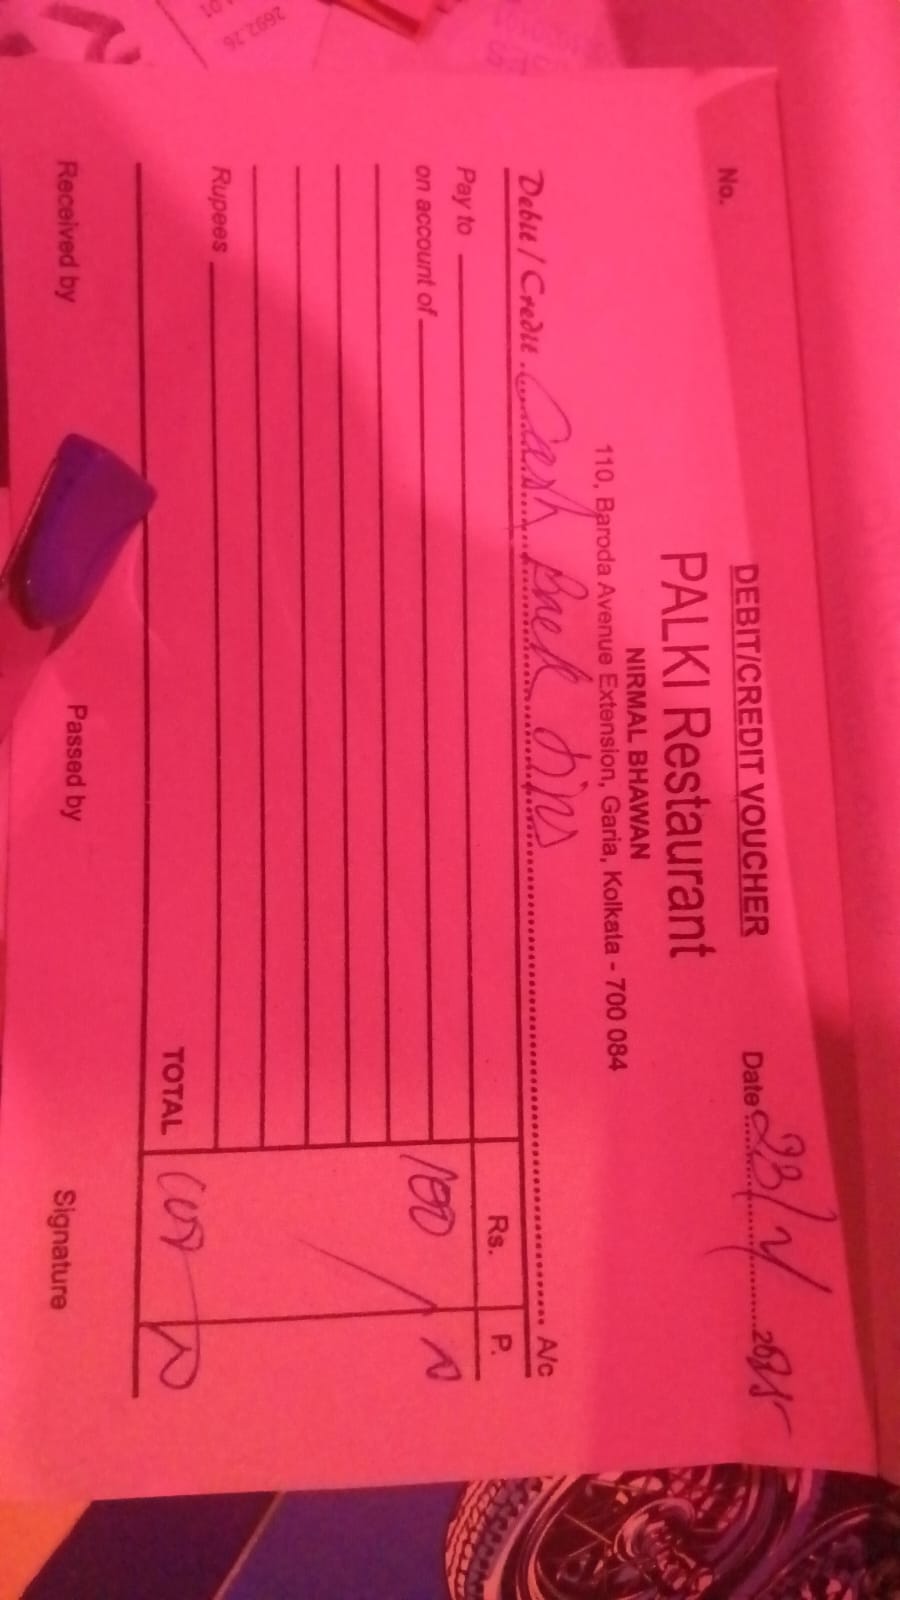 DEBIT/CREDIT VOUCHER
No.
Date 23/4/2025
PALKI Restaurant
NIRMAL BHAWAN
110, Baroda Avenue Extension, Garia, Kolkata - 700 084
Debit / Credit. Cash Back A/c
Rs. P.
Pay to
on account of 100
Rupees
TOTAL
Received by Passed by Signature
2692.26